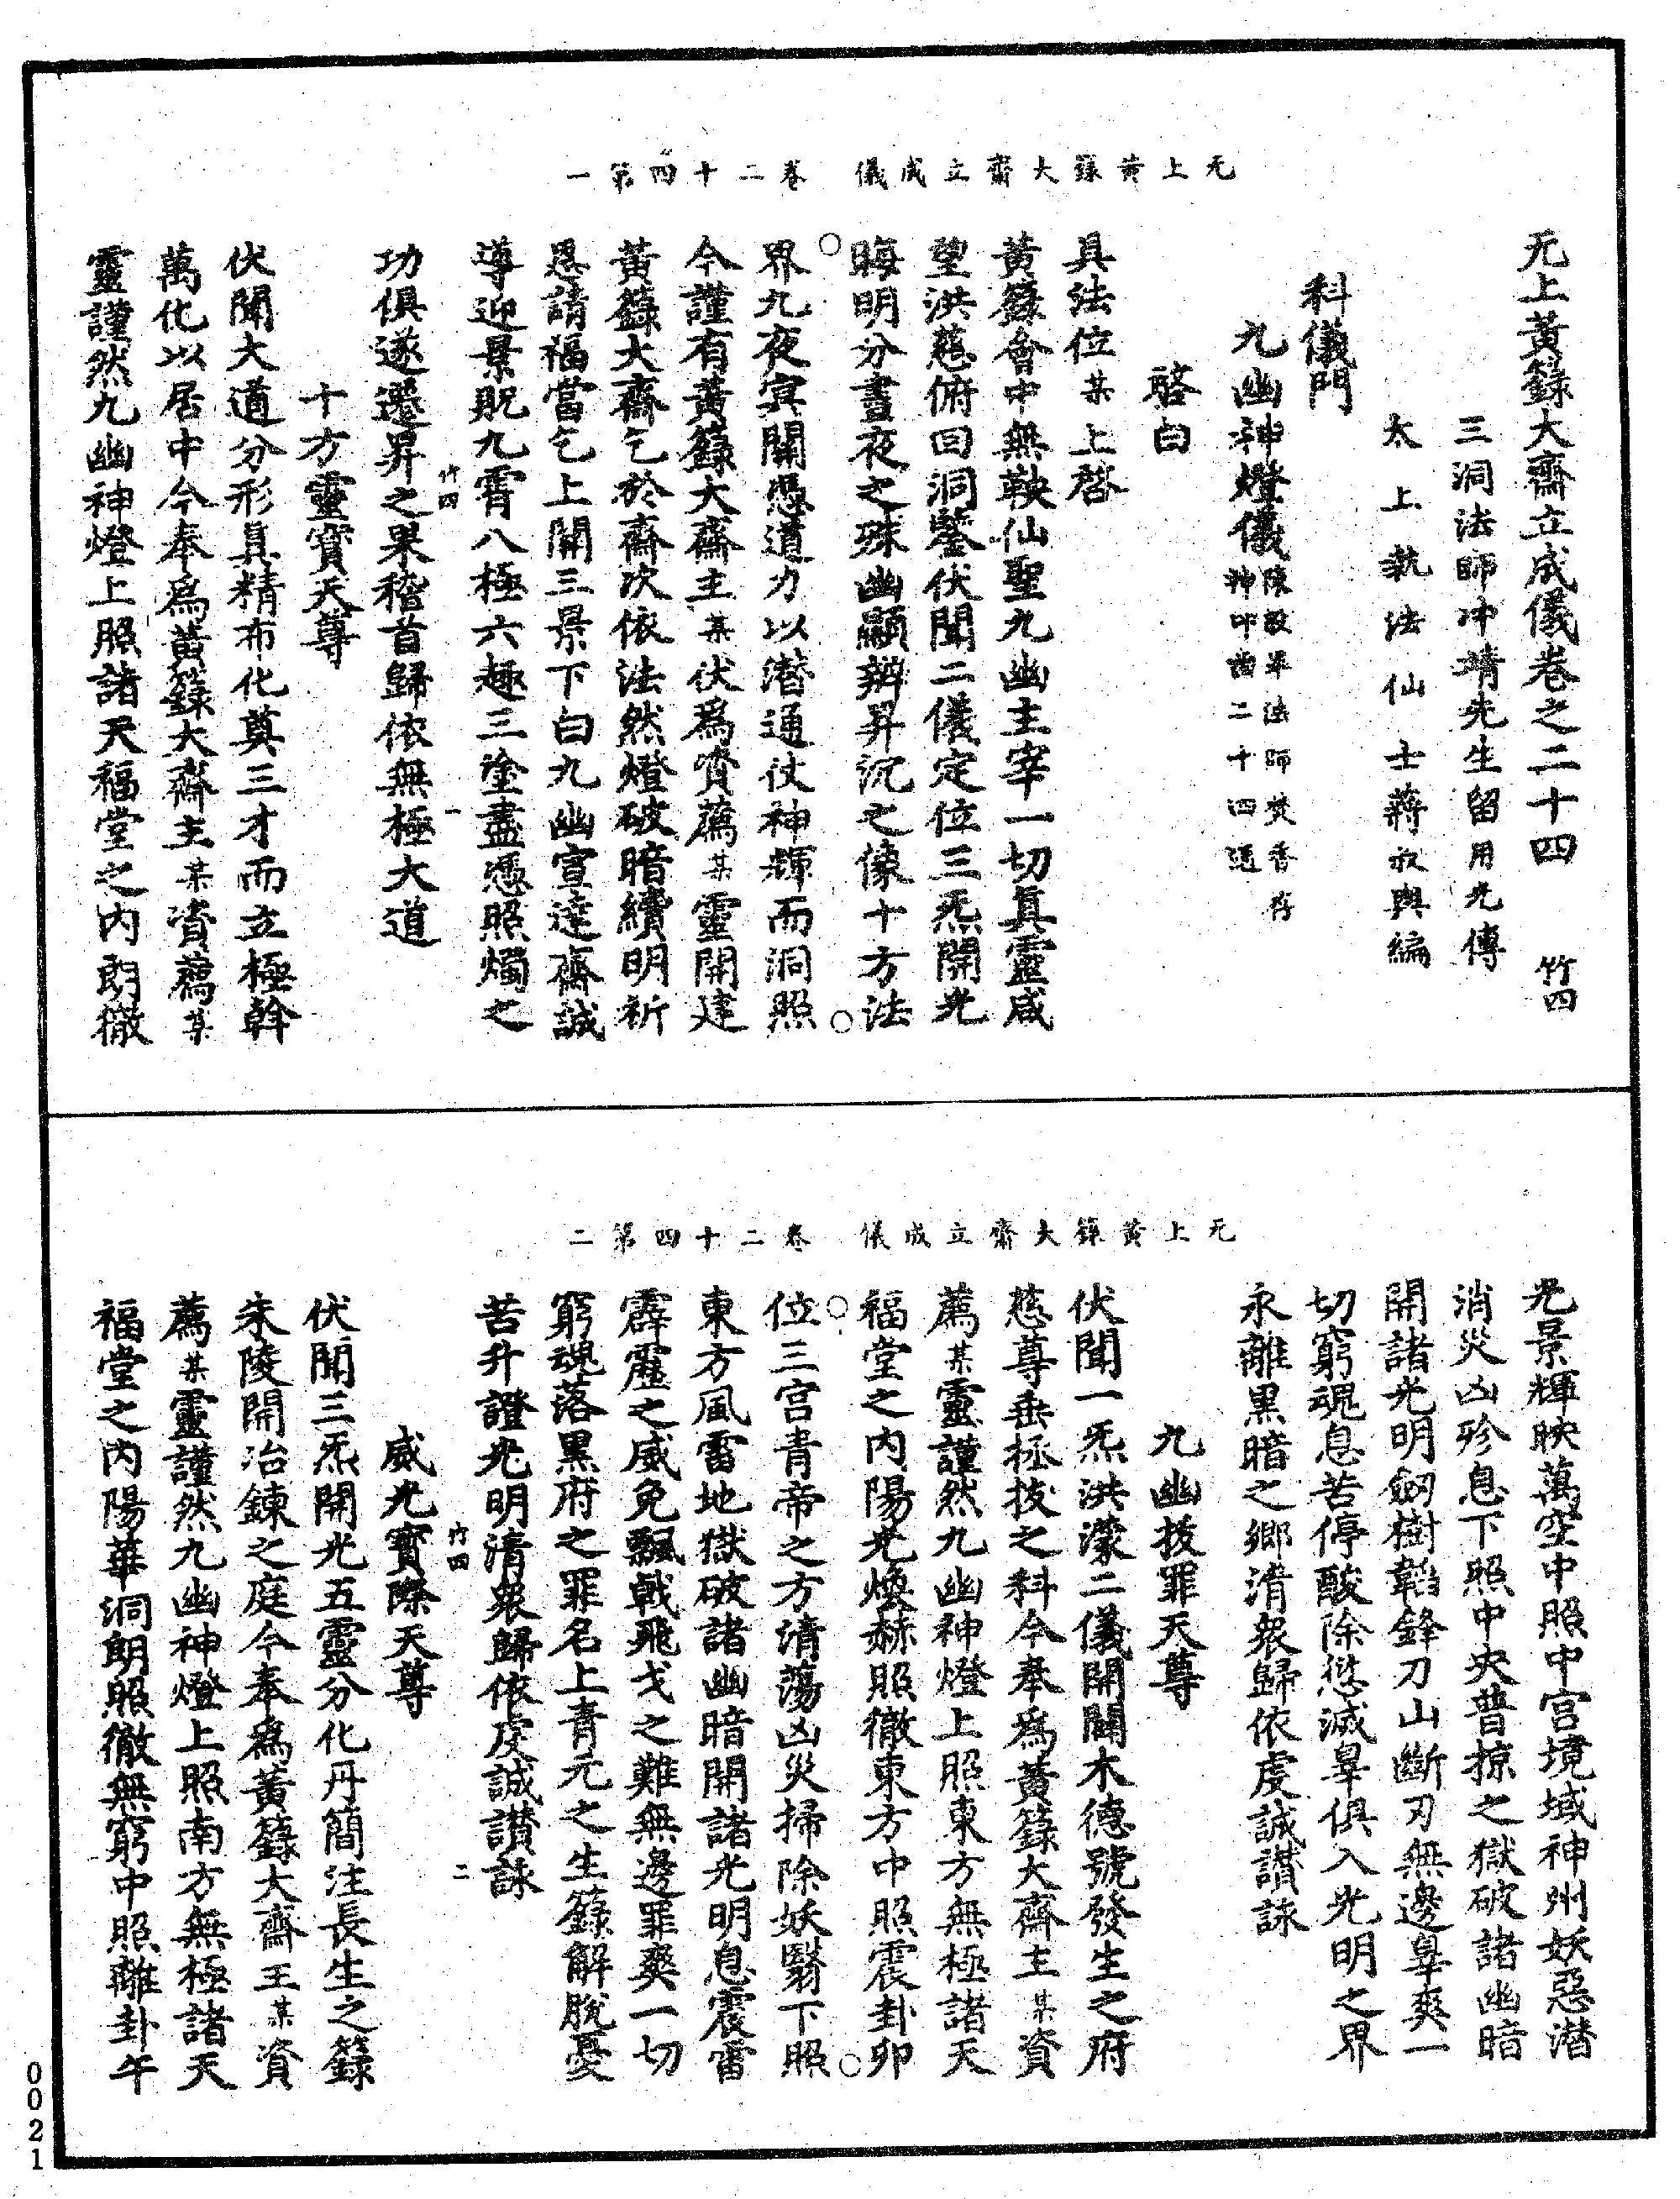 无上黃籙大齋立成儀卷二十四第一
无上黃籙大齋立成儀卷之二十四 竹四
三洞法師冲靖先生留用光傳
太上執法仙士蔣叔輿編
科儀門
九幽神燈儀陳設畢法師焚香存
神叩齒二十四通
啓白
具法位某上啓
黃籙會中無鞅仙聖九幽主宰一切真靈咸
望洪慈俯回洞鑒伏聞二儀定位三炁開光
晦明分晝夜之殊幽顯辨昇沉之像十方法
界九夜㝠關憑道力以潛通仗神輝而洞照
今謹有黃籙大齋主某伏爲資薦某靈開建
黃籙大齋乞於齋次依法然燈破暗續明祈
恩請福當乞上聞三景下白九幽宣達齋誠
導迎景貺九霄八極六趣三塗盡憑照燭之
功俱遂遷昇之果稽首歸依無極大道
竹四 一
十方靈寳天尊
伏聞大道分形真精布化奠三才而立極斡
萬化以居中今奉爲黃籙大齋主某資薦某
靈謹然九幽神燈上照諸天福堂之内朗徹
无上黃籙大齋立成儀卷二十四第二
光景輝映萬空中照中宫境域神州妖惡潛
消災凶殄息下照中央普掠之獄破諸幽暗
開諸光明劒樹韜鋒刀山斷刃無邊辠爽一
切窮魂息苦停酸除愆滅辠俱入光明之界
永離黑暗之鄉清衆歸依虔誠讃詠
九幽拔罪天尊
伏聞一炁洪濛二儀開闢木德號發生之府
慈尊垂拯拔之科今奉爲黃籙大齋主某資
薦某靈謹然九幽神燈上照東方無極諸天
福堂之内陽光煥赫照徹東方中照震卦卯
位三宫青帝之方清蕩凶災掃除妖翳下照
東方風雷地獄破諸幽暗開諸光明息震雷
霹靂之威免飄戟飛戈之難無邊罪爽一切
窮魂落黑府之罪名上青元之生籙解脫憂
苦升證光明清衆歸依虔誠讃詠
竹四 二
威光寳際天尊
伏聞三炁開光五靈分化丹簡注長生之籙
朱陵開冶鍊之庭今奉爲黃籙大齋王某資
薦某靈謹然九幽神燈上照南方無極諸天
福堂之内陽華洞朗照徹無窮中照離卦午
0021